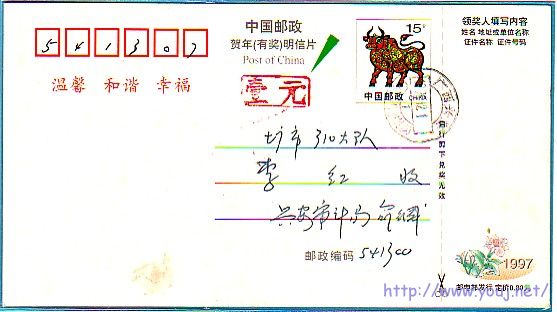 541307
温馨 和谐 幸福
中国邮政
贺年(有奖)明信片
Post of China
壹元
15分
中国邮政 CHINA
领奖人填写内容
姓名 地址或单位名称
证件名称 证件号码
310大队
李 红 收
兴安审计局
邮政编码 541300
自行剪下兑奖无效
1997
邮电部发行 定价0.80元
http://www.youj.net/